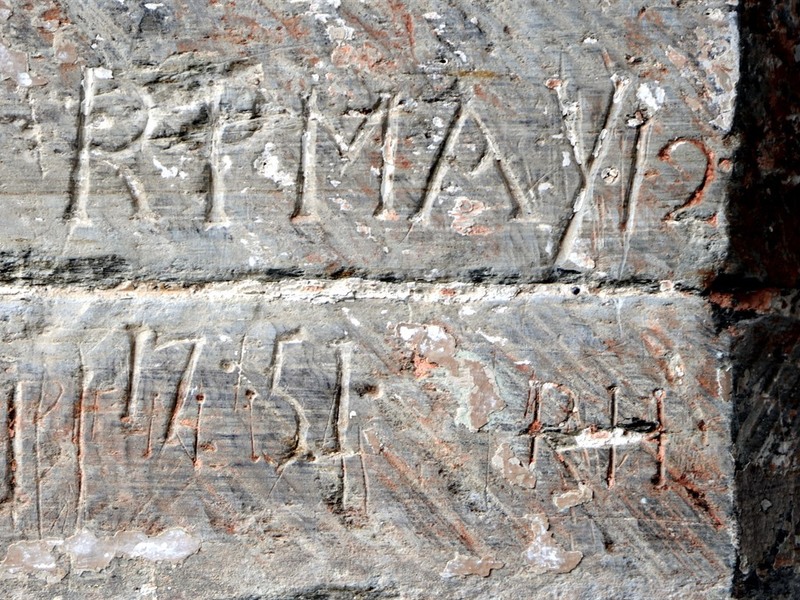 RP MAY 12
1751 RH